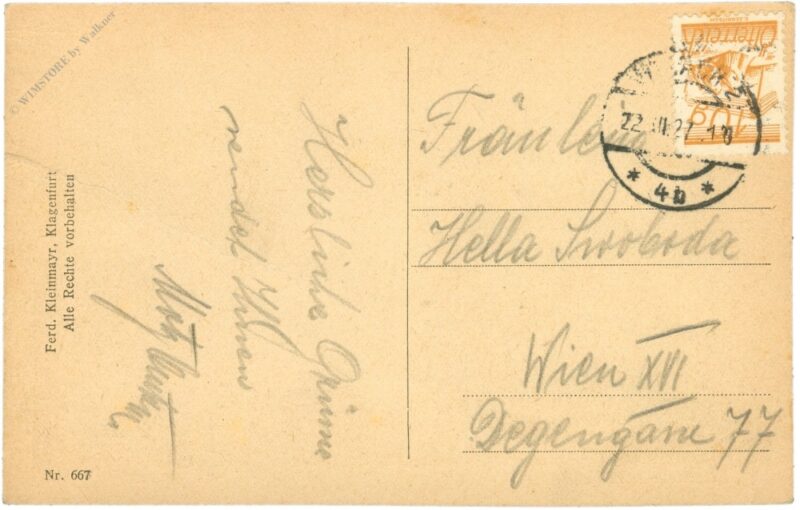 © WIMSTORE by Walkner
Herzliche Grüsse
sendet Ihnen
Ferd. Kleinmayr, Klagenfurt
Alle Rechte vorbehalten
Nr. 667
Österreich
10g
22. 27
* 4b *
Fräulein
Hella Swoboda
Wien XVI
Degengasse 77